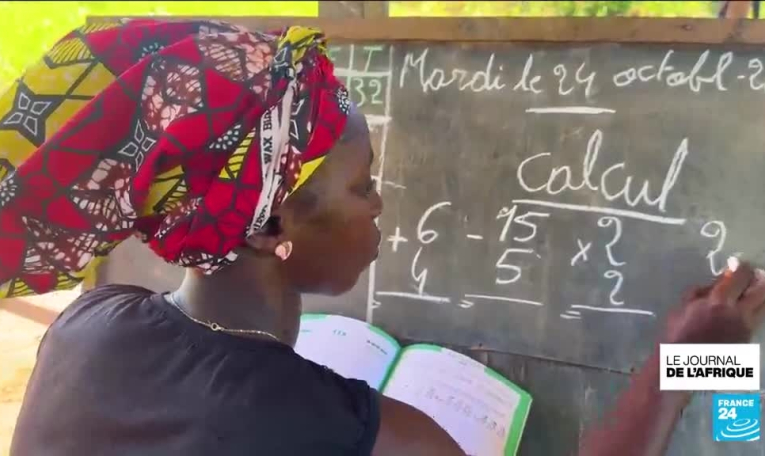 T
32
Mardi le 24 octobl - 2
Calcul
+ 6 - 15 × 2 2
4 5 2
= = =
WAX
LE JOURNAL
DE L'AFRIQUE
FRANCE
24